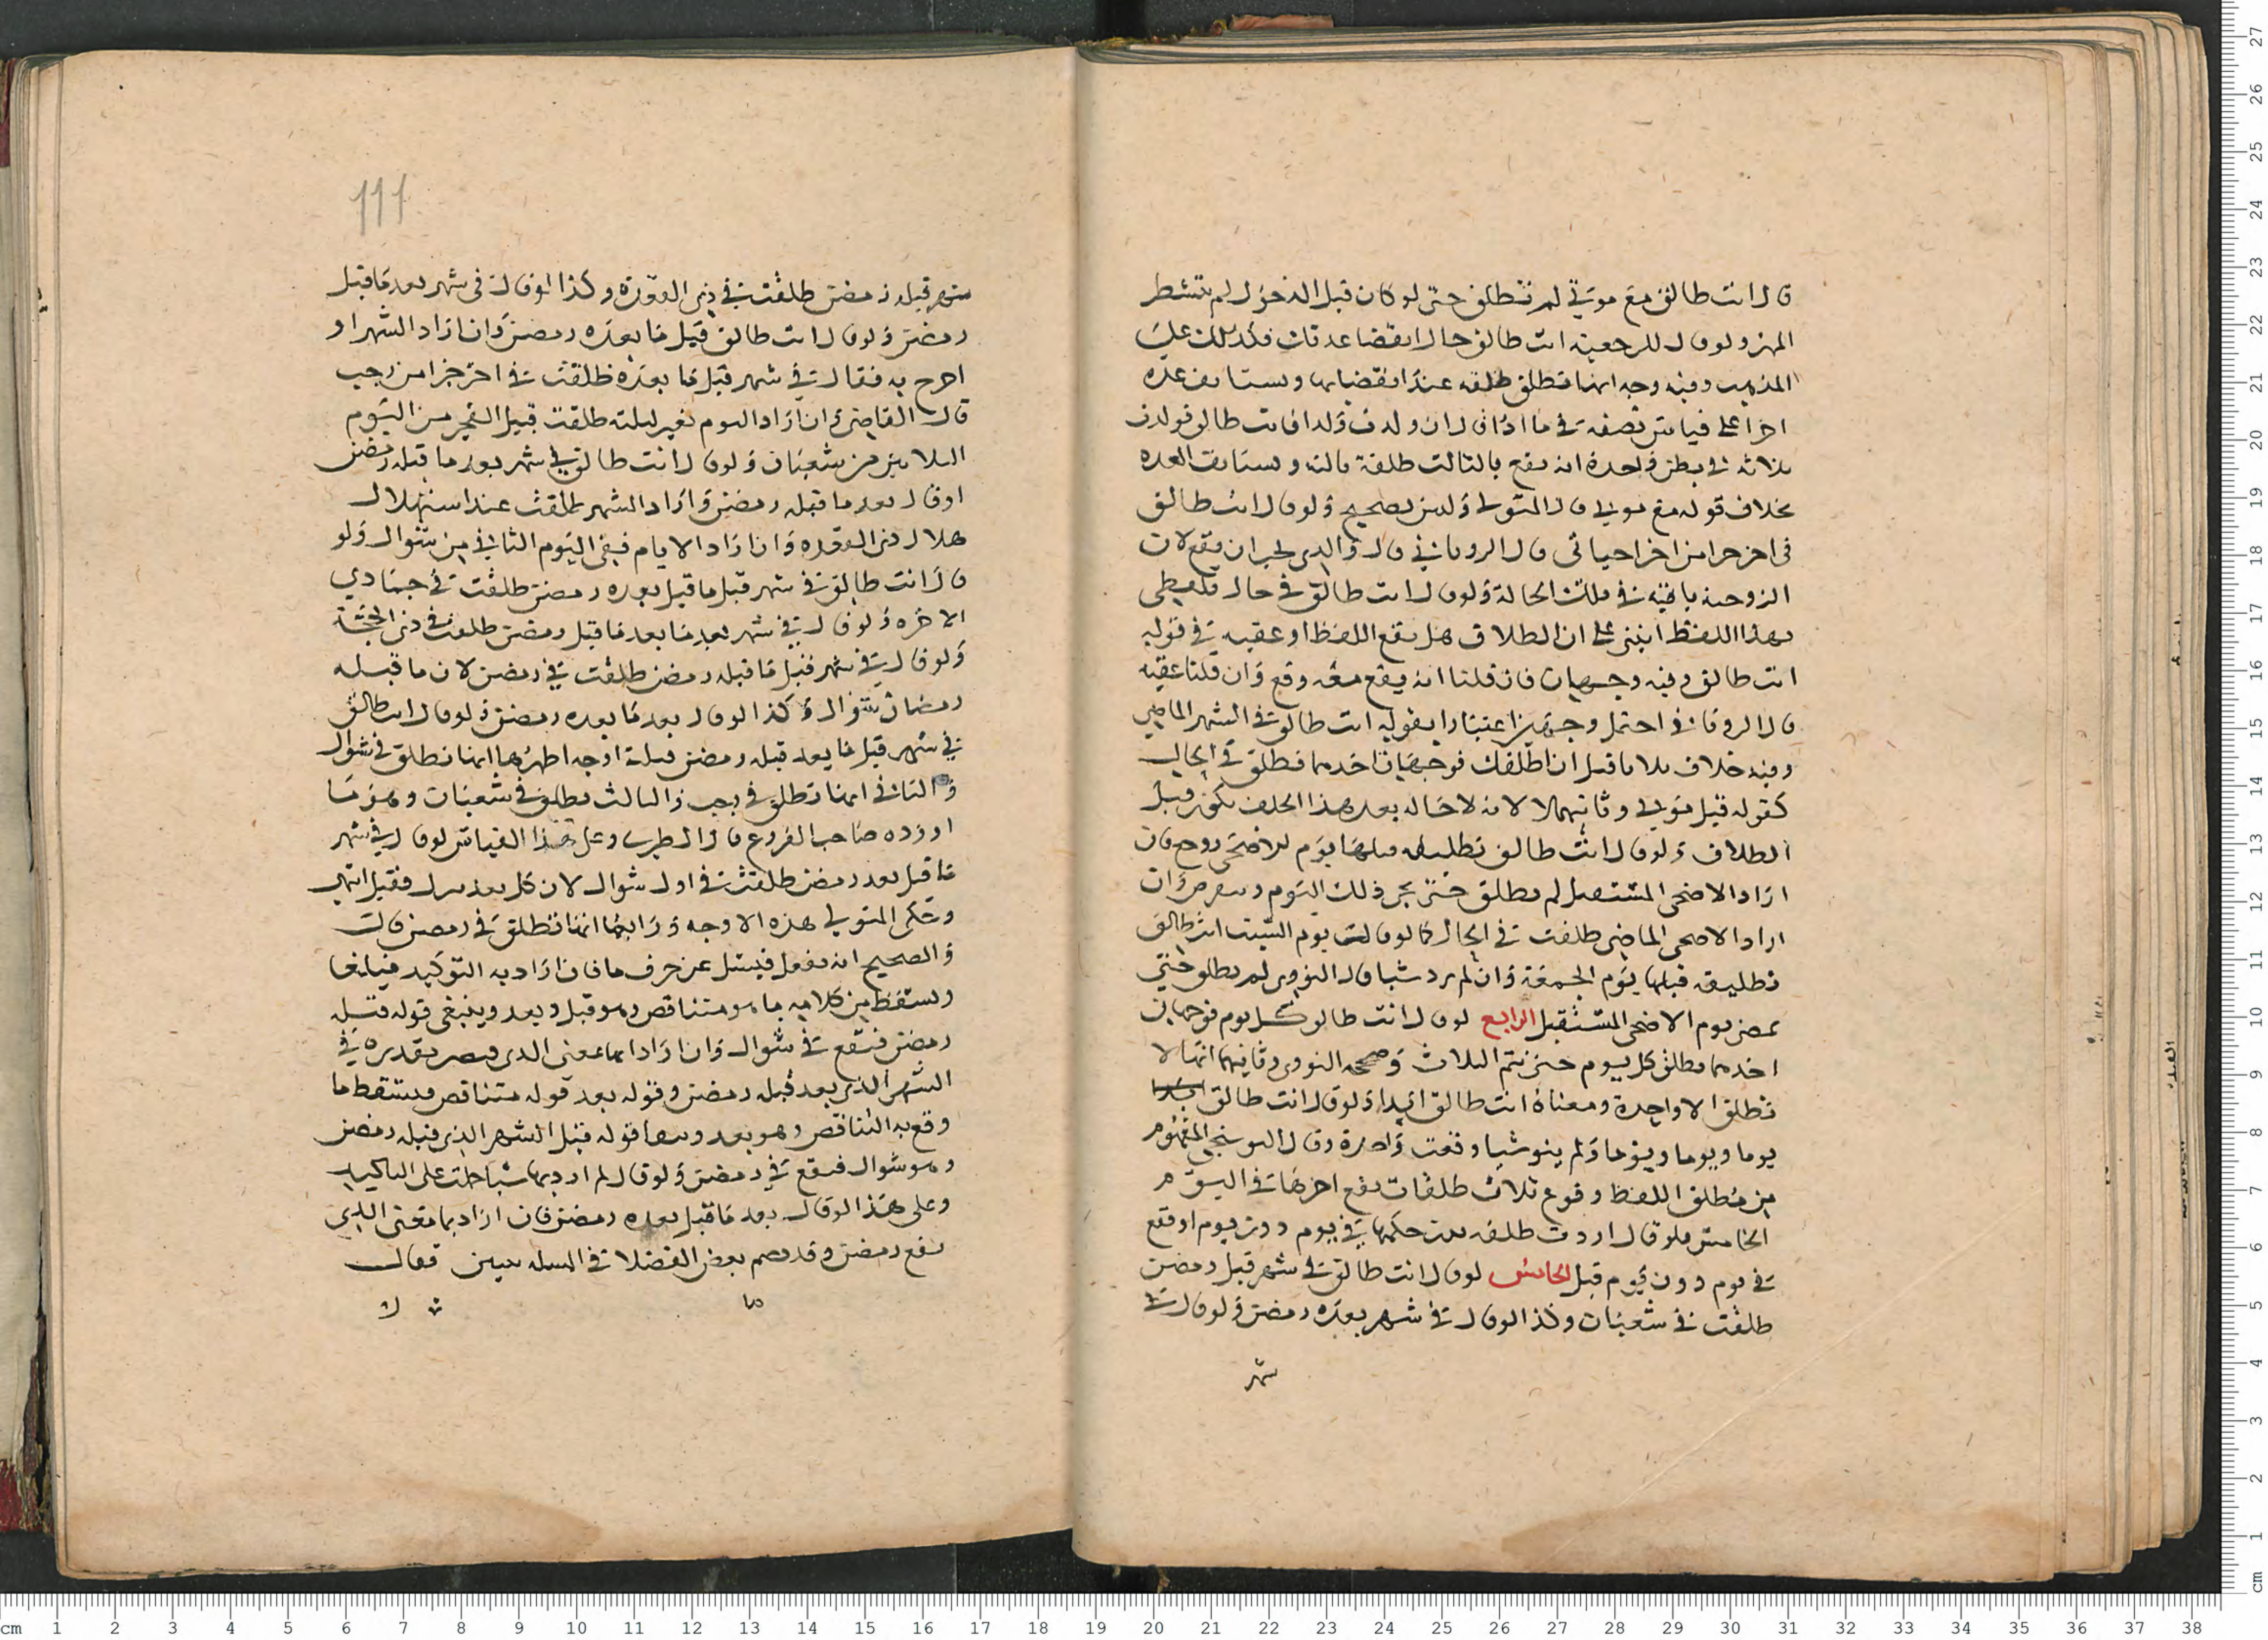 قال انت طالق مع موتي لم تطلق حتى لو كان قبل الدخول لم يتشطر
المهر ولو قال للرجعية انت طالق حال انقضا عدتك فكذلك على
المذهب وفيه وجه انها تطلق طلقه عند انقضايها وتستانف عده
اخرا على قياس نصفه في ما اذا قال ان ولدت ولدا فانت طالق فولدت
ثلاثه في بطن واحدة انه يقع بالثالث طلقة ثالثه وتستانف العده
بخلاف قوله مع موتي قال المتولي وليس بصحيح ولو قال انت طالق
في اخر جزا من اخر احياتي قال الروياني قال والدي يجب ان يقع لان
الزوجية باقية في تلك الحالة ولو قال انت طالق في حال تلفظي
بهذا اللفظ ابتني على ان الطلاق هل يقع اللفظ او عقيبه في قوله
انت طالق وفيه وجهان فان قلنا انه يقع معه وقع وان قلنا عقيبه
قال الروياني احتمل وجهين اعتبارا بقوله انت طالق في الشهر الماضي
وفيه خلاف فلو قال قبل ان اطلقك فوجهان احدهما تطلق في الحال
كقوله قبل موتي وثانيهما لا لانه لا حاله بعد هذا الحلف تكون قبل
الطلاق ولو قال انت طالق تطليقه قبلها يوم الاضحى روجع فان
اراد الاضحى المستقبل لم تطلق حتى يجي ذلك اليوم وينقرض وان
اراد الاضحى الماضي طلقت في الحال كما لو قال يوم السبت انت طالق
تطليقه قبلها يوم الجمعة وان لم يرد شيا قال النووي لم تطلق حتى
يمضي يوم الاضحى المستقبل الرابع لو قال انت طالق كل يوم فوجهان
احدهما تطلق كل يوم حتى يتم الثلاث وصححه النووي وثانيهما انها لا
تطلق الا واحدة ومعناه انت طالق ابدا ولو قال انت طالق
يوما ويوما ويوما ولم ينو شيا وقعت واحدة وقال البوشنجي المفهوم
من مطلق اللفظ وقوع ثلاث طلقات يقع اخرها في اليوم
الخامس فلو قال اردت طلقه يثبت حكمها في يوم دون يوم او تقع
في يوم دون يوم قبل الخامس لو قال انت طالق في شهر قبل رمضن
طلقت في شعبان وكذا لو قال في شهر بعده رمضن ولو قال في
شهر
111
شهر قبله رمضن طلقت في ذي القعدة وكذا لو قال في شهر بعد ما قبل
رمضن ولو قال انت طالق قبل ما بعده رمضن وان اراد الشهر او
صرح به فقال في شهر قبل ما بعده طلقت في اخر جزا من رجب
قال القاضي وان اراد اليوم بغير ليلته طلقت قبيل الفجر من اليوم
الثلاثين من شعبان ولو قال انت طالق في شهر بعد ما قبله رمضن
او قال بعد ما قبله رمضن واراد الشهر طلقت عند استهلال
هلال ذي القعده وان اراد الايام ففي اليوم الثاني من شوال ولو
قال انت طالق في شهر قبل ما قبل بعده رمضن طلقت في جمادي
الاخره ولو قال في شهر بعد ما بعد ما قبل رمضن طلقت في ذي الحجة
ولو قال في شهر قبل ما قبله رمضن طلقت في رمضن لان ما قبله
رمضان شوال وكذا لو قال بعد ما بعده رمضن ولو قال انت طالق
في شهر قبل ما بعد قبله رمضن فثلثة اوجه اظهرها انها تطلق في شوال
والثاني انها تطلق في رجب والثالث تطلق في شعبان وهو ما
اورده صاحب الفروع قال الطبري وعلى هذا القياس لو قال في شهر
ما قبل بعد رمضن طلقت في اول شوال لان كل بعد قبل فقبل انتهى
وحكى المتولي هذه الاوجه ورابعها انها تطلق في رمضن قال
والصحيح انه يفصل فيسئل عن حرف ما فان اراد به التوكيد فيلغا
ويسقط من كلامه ما هو متناقص وهو قبل وبعد ويبقى قوله قبله
رمضن فتقع في شوال وان اراد ما بمعنى الذي فيصير تقديره في
الشهر الذي بعد قبله رمضن وقوله بعد قوله متناقص فيسقط ما
وقع به التناقص وهو بعد وبقا قوله قبل الشهر الذي قبله رمضن
وهو شوال فيقع في رمضن ولو قال لم ارد بها شيا حملت على التاكيد
وعلى هذا لو قال بعد ما قبل بعده رمضن فان اراد بما معنى الذي
يقع رمضن وقد نظم بعض الفضلا في المسله بيتين فقال